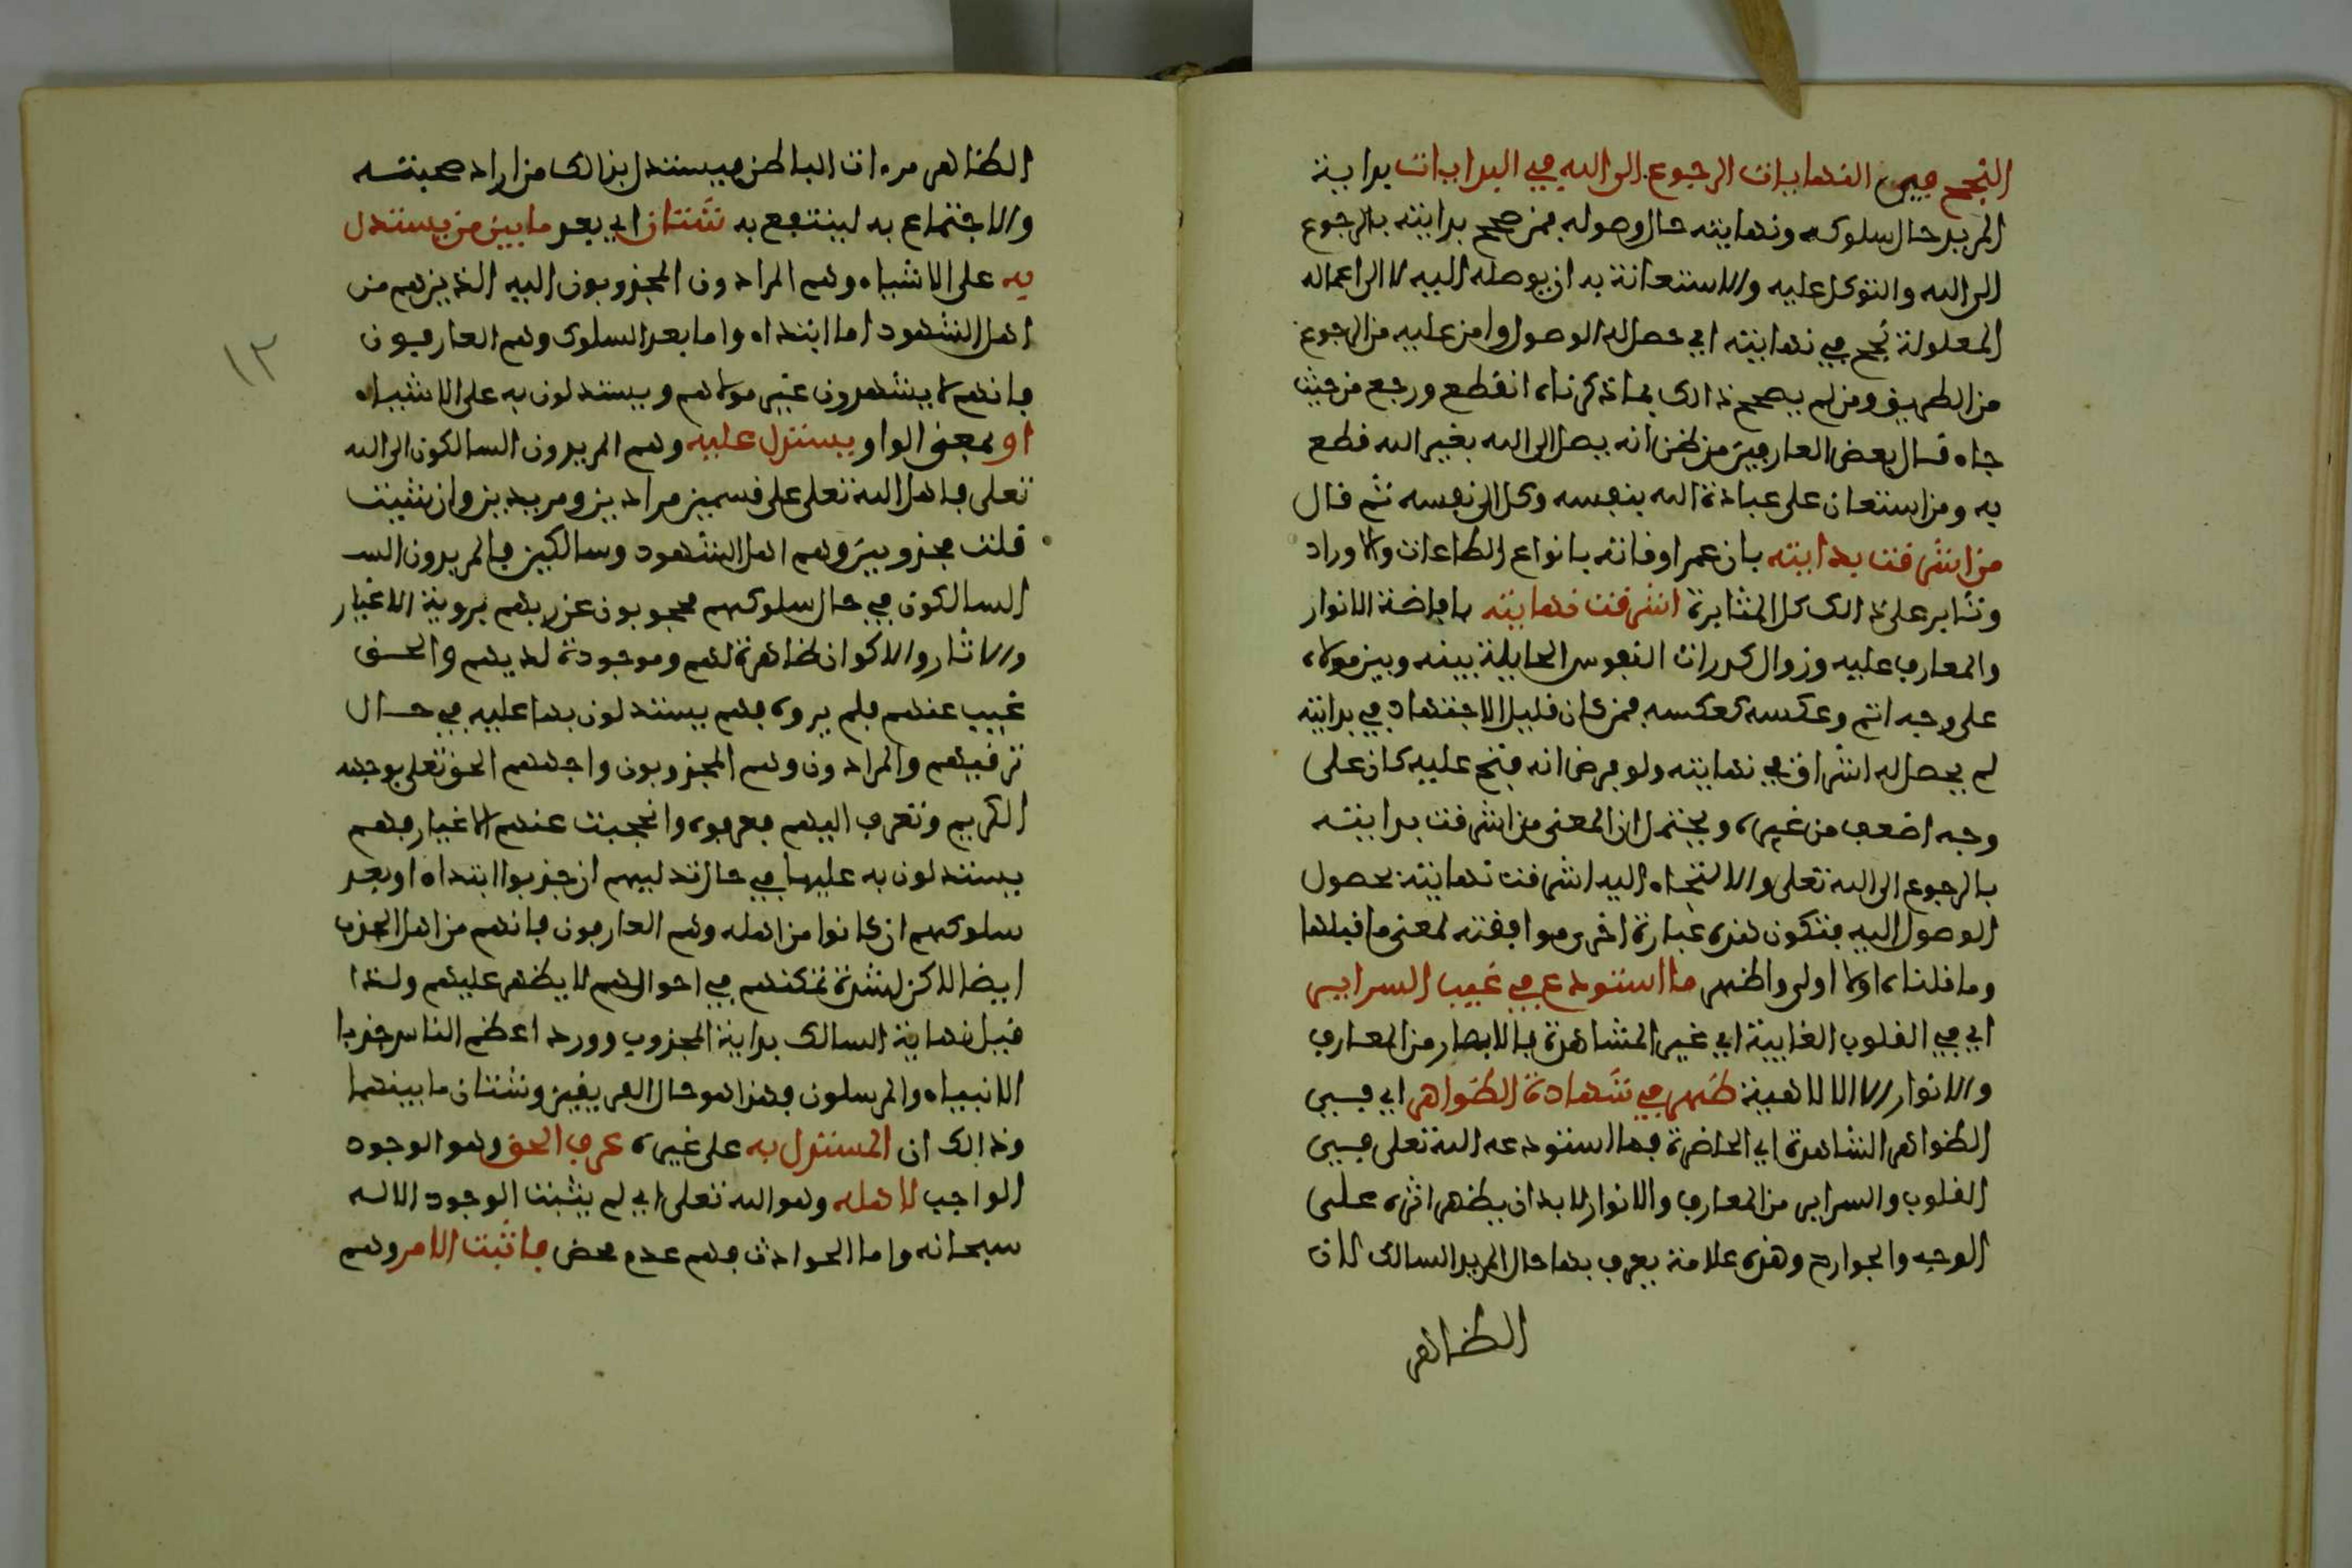 النجح في النهايات الرجوع الى الله في البدايات بداية
المريد حال سلوكه ونهايته حال وصوله فمن صحح بدايته بالرجوع
الى الله والتوكل عليه والاستعانة به ان يوصله اليه لا الى اعماله
المعلولة نجح في نهايته اي حصل له الوصول وامن عليه من الرجوع
من الطريق ومن لم يصحح ذالك بما ذكرناه انقطع ورجع من حيث
جاء قال بعض العارفين من ظن انه يصل الى الله بغير الله قطع
به ومن استعان على عبادة الله بنفسه وكل الى نفسه ثم قال
من اشرقت بدايته بان عمر اوقاته بانواع الطاعات والاوراد
وثابر على ذالك كل المثابرة اشرقت نهايته بافاضة الانوار
والمعارف عليه وزوال كدورات النفوس الحايلة بينه وبين مولاه
على وجه اتم وعكسه كعكسه فمن كان قليل الاجتهاد في بدايته
لم يحصل له اشراق في نهايته ولو فرض انه فتح عليه كان على
وجه اضعف من غيره ويحتمل ان المعنى من اشرقت بدايته
بالرجوع الى الله تعلى والالتجاء اليه اشرقت نهايته بحصول
الوصول اليه فتكون هذه عبارة اخرى موافقته لمعنى ما قبلها
وما قلناه اولا اولى واظهر ما استودع في غيب السراير
اي في القلوب الغايبة اي غير المشاهرة بالابصار من المعارف
والانوار الا الالاهية ظهر في شهادة الظواهر اي في
الظواهر الشاهدة اي الحاضرة فما استودعه الله تعلى في
القلوب والسراير من المعارف والانوار لابد ان يظهر اثره على
الوجه والجوارح وهذه علامة يعرف بها حال المريد السالك لان
الظاهر
الظاهر مرءات الباطن فيستدل بذالك من اراد صحبته
والاجتماع به لينتفع به شتان اي بعد ما بين من يستدل
به على الاشياء وهم المرادون المجذوبون اليه الذين هم من
اهل الشهود اما ابتداء واما بعد السلوك وهم العارفون
فانهم لا يشهدون غير مولاهم ويستدلون به على الاشياء
او بمعنى الواو يستدل عليه وهم المريدون السالكون الى الله
تعلى فاهل الله تعلى على قسمين مرادين ومريدين وان شيت
قلت مجذوبين وهم اهل الشهود وسالكين فالمريدون الس
السالكون في حال سلوكهم محجوبون عن ربهم بروية الاغيار
والاثار والاكوان ظاهرة لهم وموجودة لديهم والحق
غيب عنهم فلم يروه فهم يستدلون بها عليه في حال
ترقيهم والمرادون وهم المجذوبون واجههم الحق تعلى بوجهه
الكريم وتعرف اليهم فعرفوه وانحجبت عنهم الاغيار فهم
يستدلون به عليها في حال تدليهم ان جذبوا ابتداء او بعد
سلوكهم ان كانوا من اهله وهم العارفون فانهم من اهل الجذب
ايضا لاكن لشدة تمكنهم في احوالهم لا يظهر عليهم ولذا
قيل نهاية السالك بداية المجذوب وورد اعظم الناس جذبا
الانبياء والمرسلون فهذا هو حال الفريقين وشتان ما بينهما
وذالك ان المستدل به على غيره عرف الحق وهو الوجود
الواجب لاهله وهو الله تعلى اي لم يثبت الوجود الا له
سبحانه واما الحوادث فهم عدم محض فاثبت الامر وهم
١٣